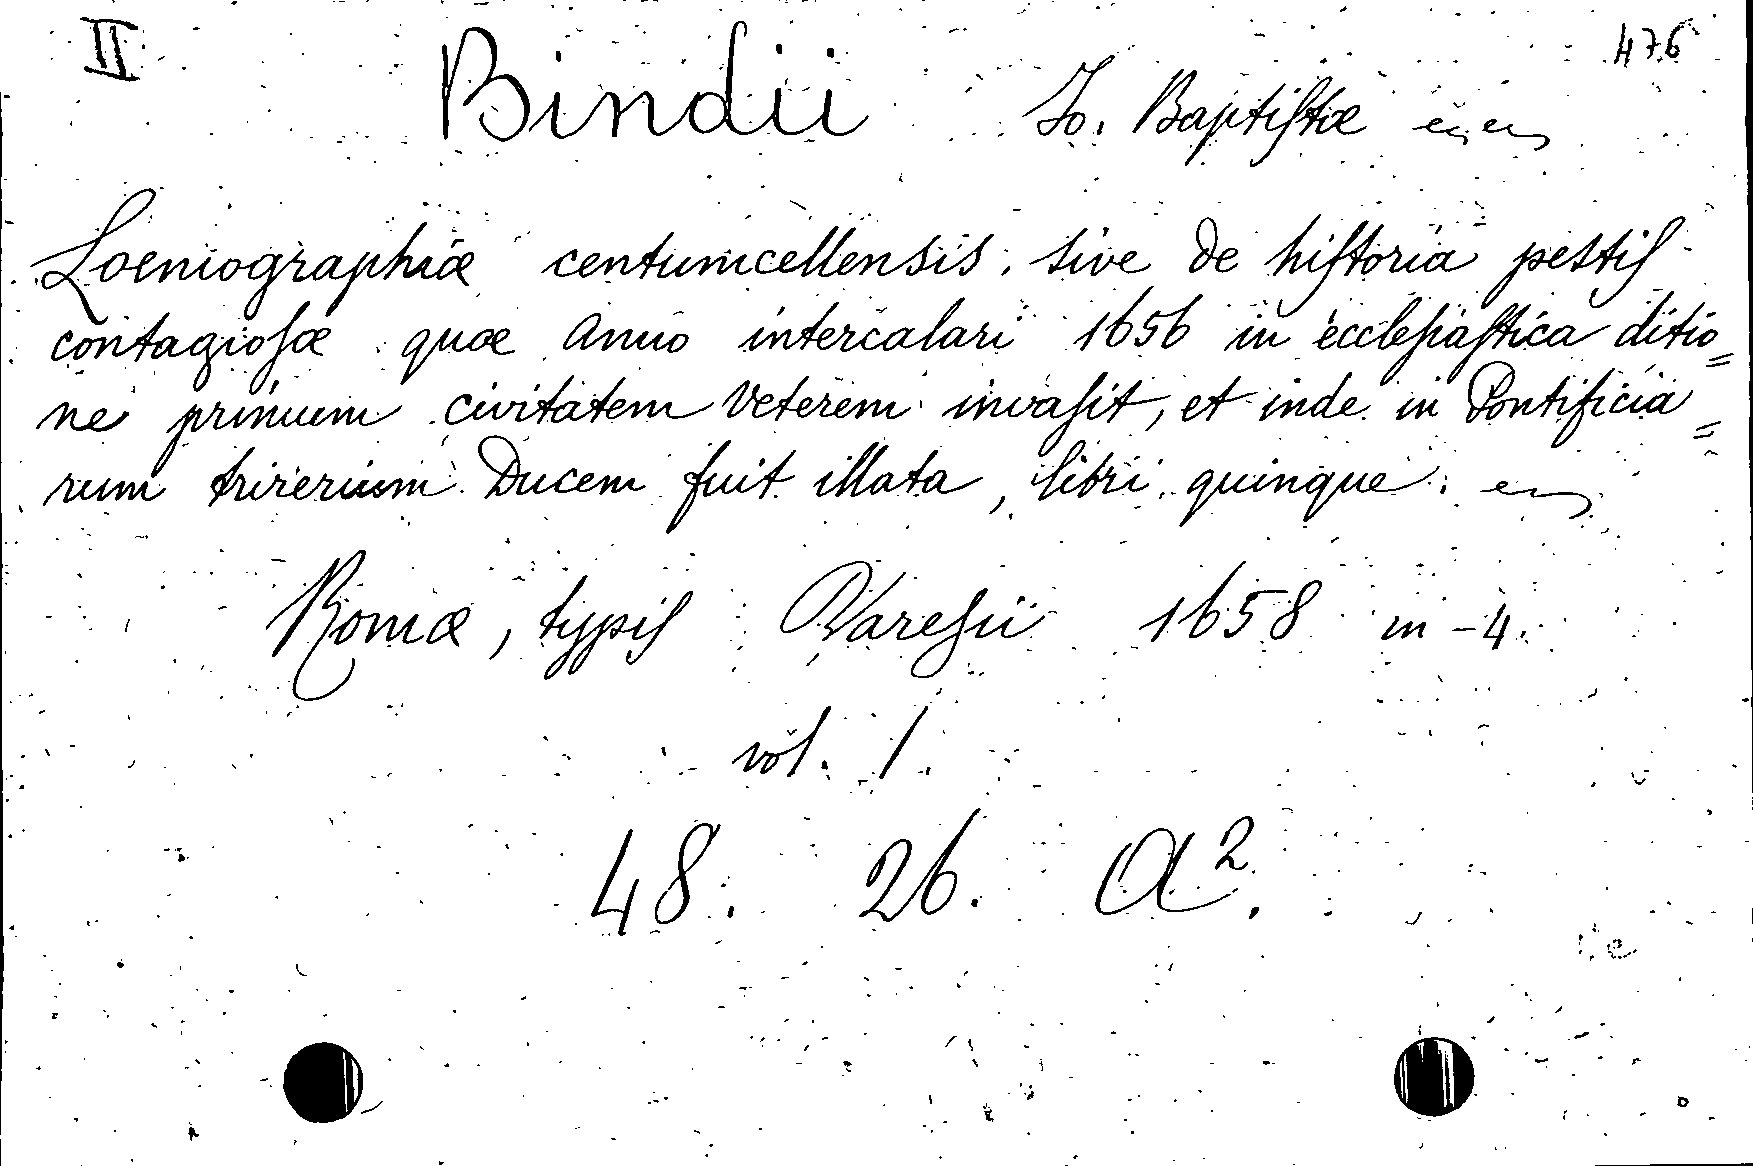 II
476
Bindii Jo. Baptiſtæ
Loemographiæ centumcellensis. sive de hiſtoria pestiſ
contagioſæ quæ anno intercalari 1656 in eccleſiaſtica ditio=
ne primum civitatem veterem invaſit, et inde in Pontificia=
rum triremium Ducem fuit illata, libri quinque.
Romæ, typiſ Vareſii 1658 in-4.
vol. 1.
48. 26. A².